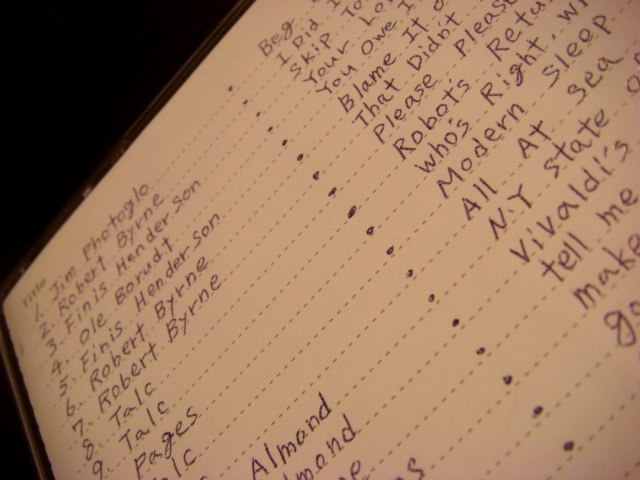 Title
1. Jim Photoglo
2. Robert Byrne
3. Finis Henderson
4. Ole Borudt
5. Finis Henderson
6. Robert Byrne
7. Robert Byrne
8. Talc
9. Talc
Pages
Almond
Beg
I Did I
Skip To
Your Lo
You Owe I
Blame It
That Didn't
Please Please
Robot's Retu
Who's Right, w
Modern Sleep
All At sea
N.Y state o
Vivaldi's
tell me
make